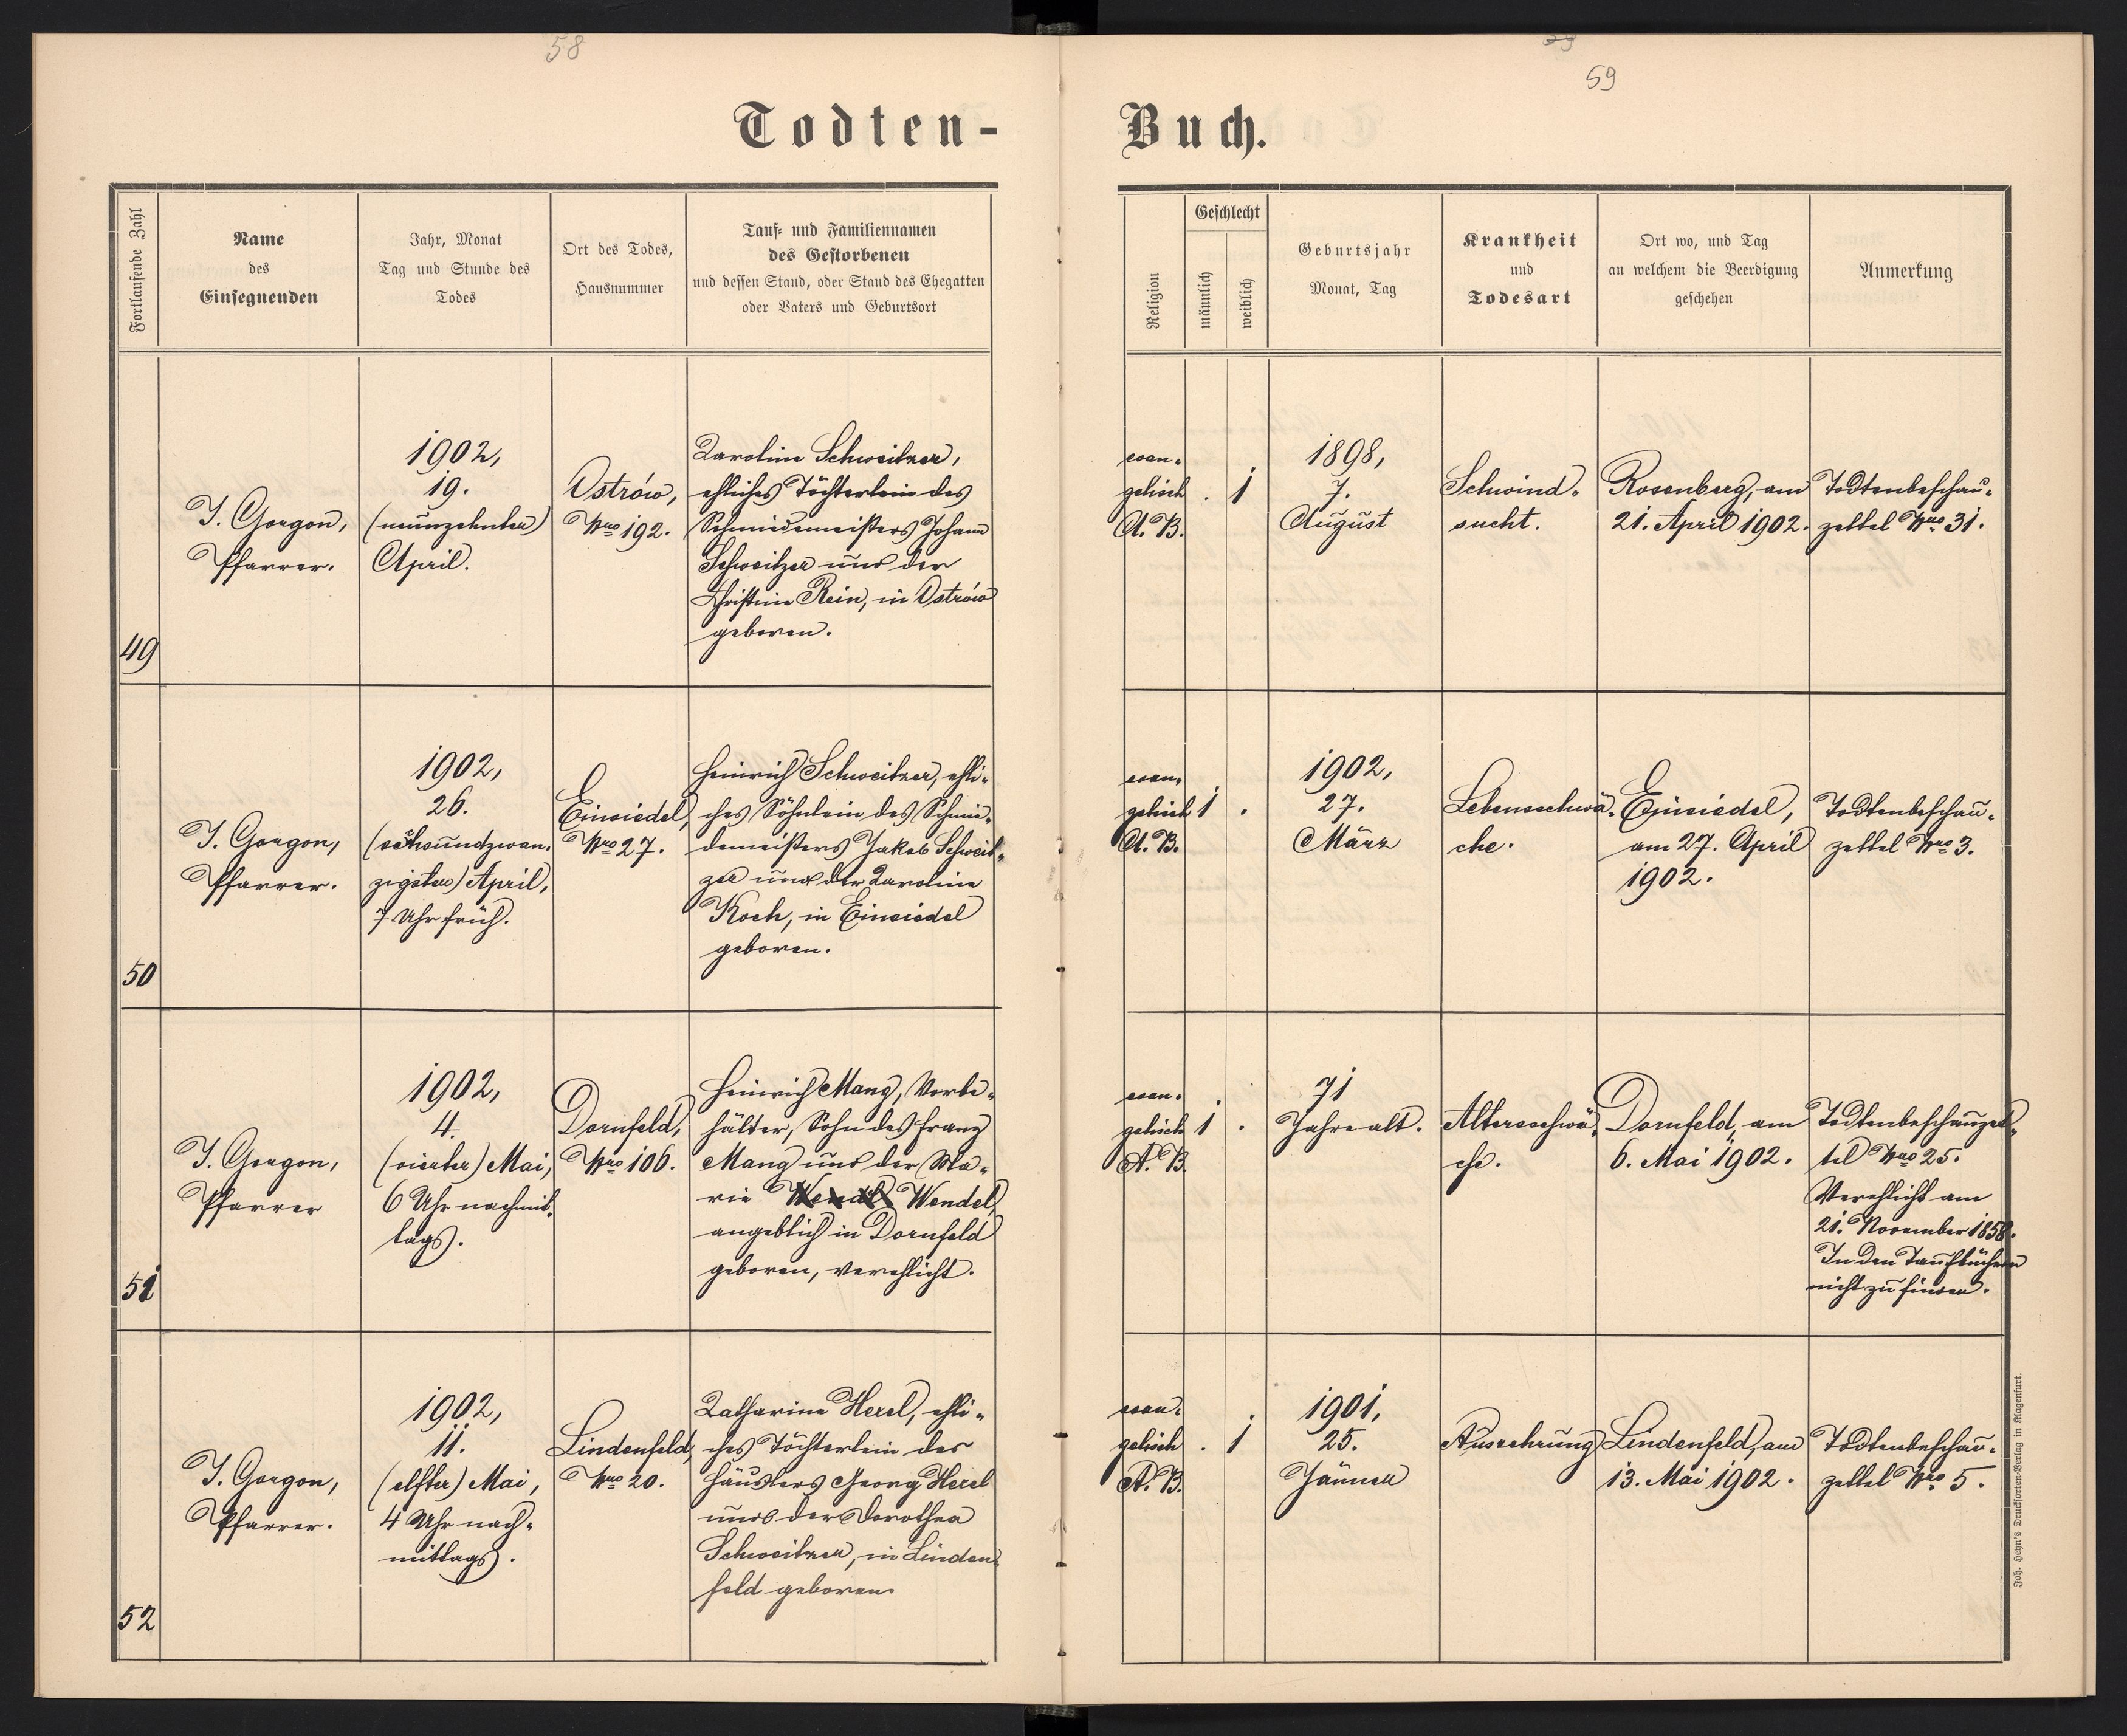 58
59
Todten-
Buch.
Fortlaufende Zahl
Name
des
Einsegnenden
Jahr, Monat
Tag und Stunde des
Todes
Ort des Todes,
Hausnummer
Tauf- und Familiennamen
des Gestorbenen
und dessen Stand, oder Stand des Ehegatten
oder Vaters und Geburtsort
Religion
Geschlecht
männlich
weiblich
Geburtsjahr
Monat, Tag
Krankheit
und
Todesart
Ort wo, und Tag
an welchem die Beerdigung
geschehen
Anmerkung
49
J. Gorgon,
Pfarrer.
1902,
19.
(neunzehnten)
April.
Ostrów,
Nro 192.
Karoline Schweitzer,
ehliches Töchterlein des
Schmiedemeisters Johann
Schweitzer und der
Christine Rein, in Ostrów
geboren.
evan-
gelisch
A. B.
. 1
1898,
7.
August
Schwind-
sucht.
Rosenberg, am
21. April 1902.
Todtenbeschau-
zettel Nro 31.
50
J. Gorgon,
Pfarrer.
1902,
26.
(sechsundzwan-
zigsten) April,
7 Uhr früh.
Einsiedel,
Nro 27.
Heinrich Schweitzer, ehli-
ches Söhnlein des Schmie-
demeisters Jakob Schweit-
zer und der Karoline
Koch, in Einsiedel
geboren.
evan-
gelisch
A. B.
1 .
1902,
27.
März
Lebensschwä-
che.
Einsiedel,
am 27. April
1902.
Todtenbeschau-
zettel Nro 3.
51
J. Gorgon,
Pfarrer
1902,
4.
(vierter) Mai,
6 Uhr nachmit-
tags.
Dornfeld,
Nro 106.
Heinrich Mang, Vorbe-
hälter, Sohn des Franz
Mang und der Ma-
rie Wendel,
angeblich in Dornfeld
geboren, verehlicht.
evan-
gelisch
A. B.
1 .
71
Jahre alt.
Altersschwä-
che.
Dornfeld, am
6. Mai 1902.
Todtenbeschauzet-
tel Nro 25.
Verehlicht am
21. November 1858.
In den Taufbüchern
nicht zu finden.
52
J. Gorgon,
Pfarrer.
1902,
11.
(elfter) Mai,
4 Uhr nach-
mittags.
Lindenfeld,
Nro 20.
Katharine Hexel, ehli-
ches Töchterlein des
Häuslers Georg Hexel
und der Dorothea
Schweitzer, in Linden-
feld geboren.
evan-
gelisch
A. B.
. 1
1901,
25.
Jänner
Auszehrung
Lindenfeld, am
13. Mai 1902.
Todtenbeschau-
zettel Nro 5.
Joh. Heyn's Drucksorten-Verlag in Klagenfurt.